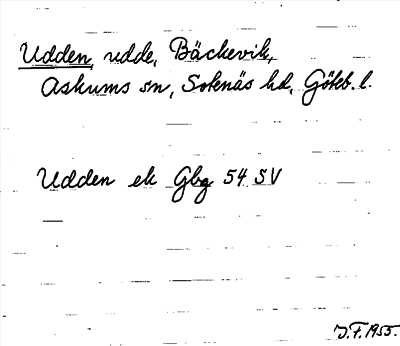 Udden, udde, Bäckevik,
Askums sn, Sotenäs hd, Göteb. l.
Udden ek Gbg 54 SV
J.F. 1955.